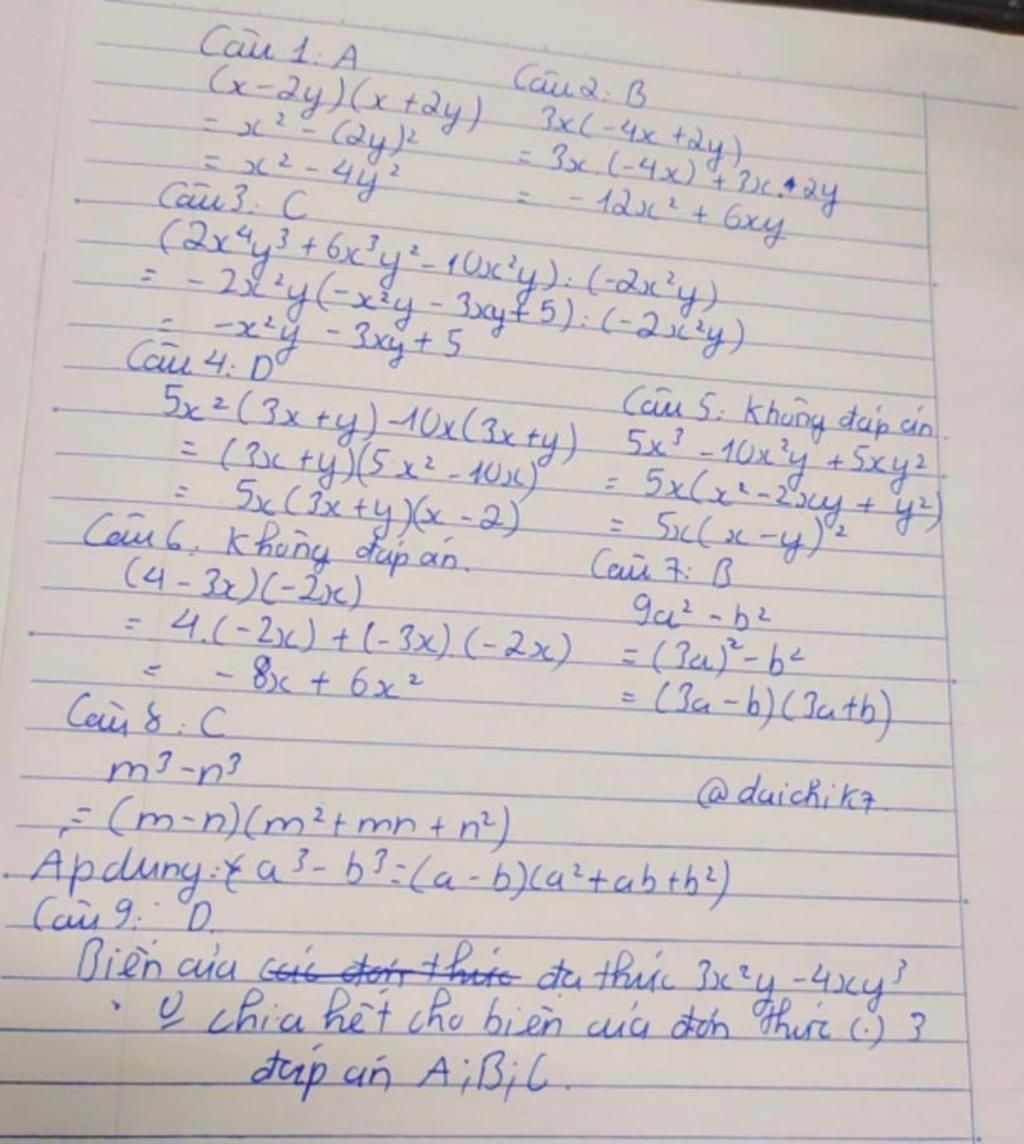 Câu 1: A
(x-2y)(x+2y)
= x² - (2y)²
= x² - 4y²
Câu 2: B
3x(-4x+2y)
= 3x.(-4x) + 3x.2y
= -12x² + 6xy
Câu 3: C
(2x⁴y³ + 6x³y² - 10x²y) : (-2x²y)
= -2x²y(-x²y - 3xy + 5) : (-2x²y)
= -x²y - 3xy + 5
Câu 4: D
5x²(3x+y) - 10x(3x+y)
= (3x+y)(5x² - 10x)
= 5x(3x+y)(x-2)
Câu 5: Không đáp án.
5x³ - 10x²y + 5xy²
= 5x(x² - 2xy + y²)
= 5x(x-y)²
Câu 6: Không đáp án.
(4-3x)(-2x)
= 4.(-2x) + (-3x)(-2x)
= -8x + 6x²
Câu 7: B
9a² - b²
= (3a)² - b²
= (3a-b)(3a+b)
Câu 8: C
m³ - n³
= (m-n)(m² + mn + n²)
@daichik7
Ap dung: a³ - b³ = (a-b)(a² + ab + b²)
Câu 9: D
Biến của các đơn thức đa thức 3x²y - 4xy³
chia hết cho biến của đơn thức (.) 3
đáp án A; B; C.